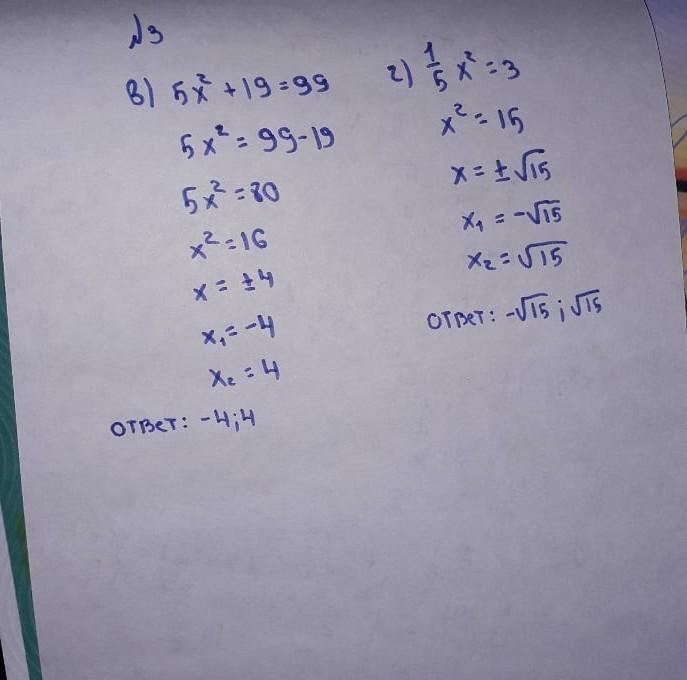 №3
в) 5x² + 19 = 99
5x² = 99 - 19
5x² = 80
x² = 16
x = ±4
x₁ = -4
x₂ = 4
ответ: -4; 4
г) 1/5 x² = 3
x² = 15
x = ±√15
x₁ = -√15
x₂ = √15
ответ: -√15; √15